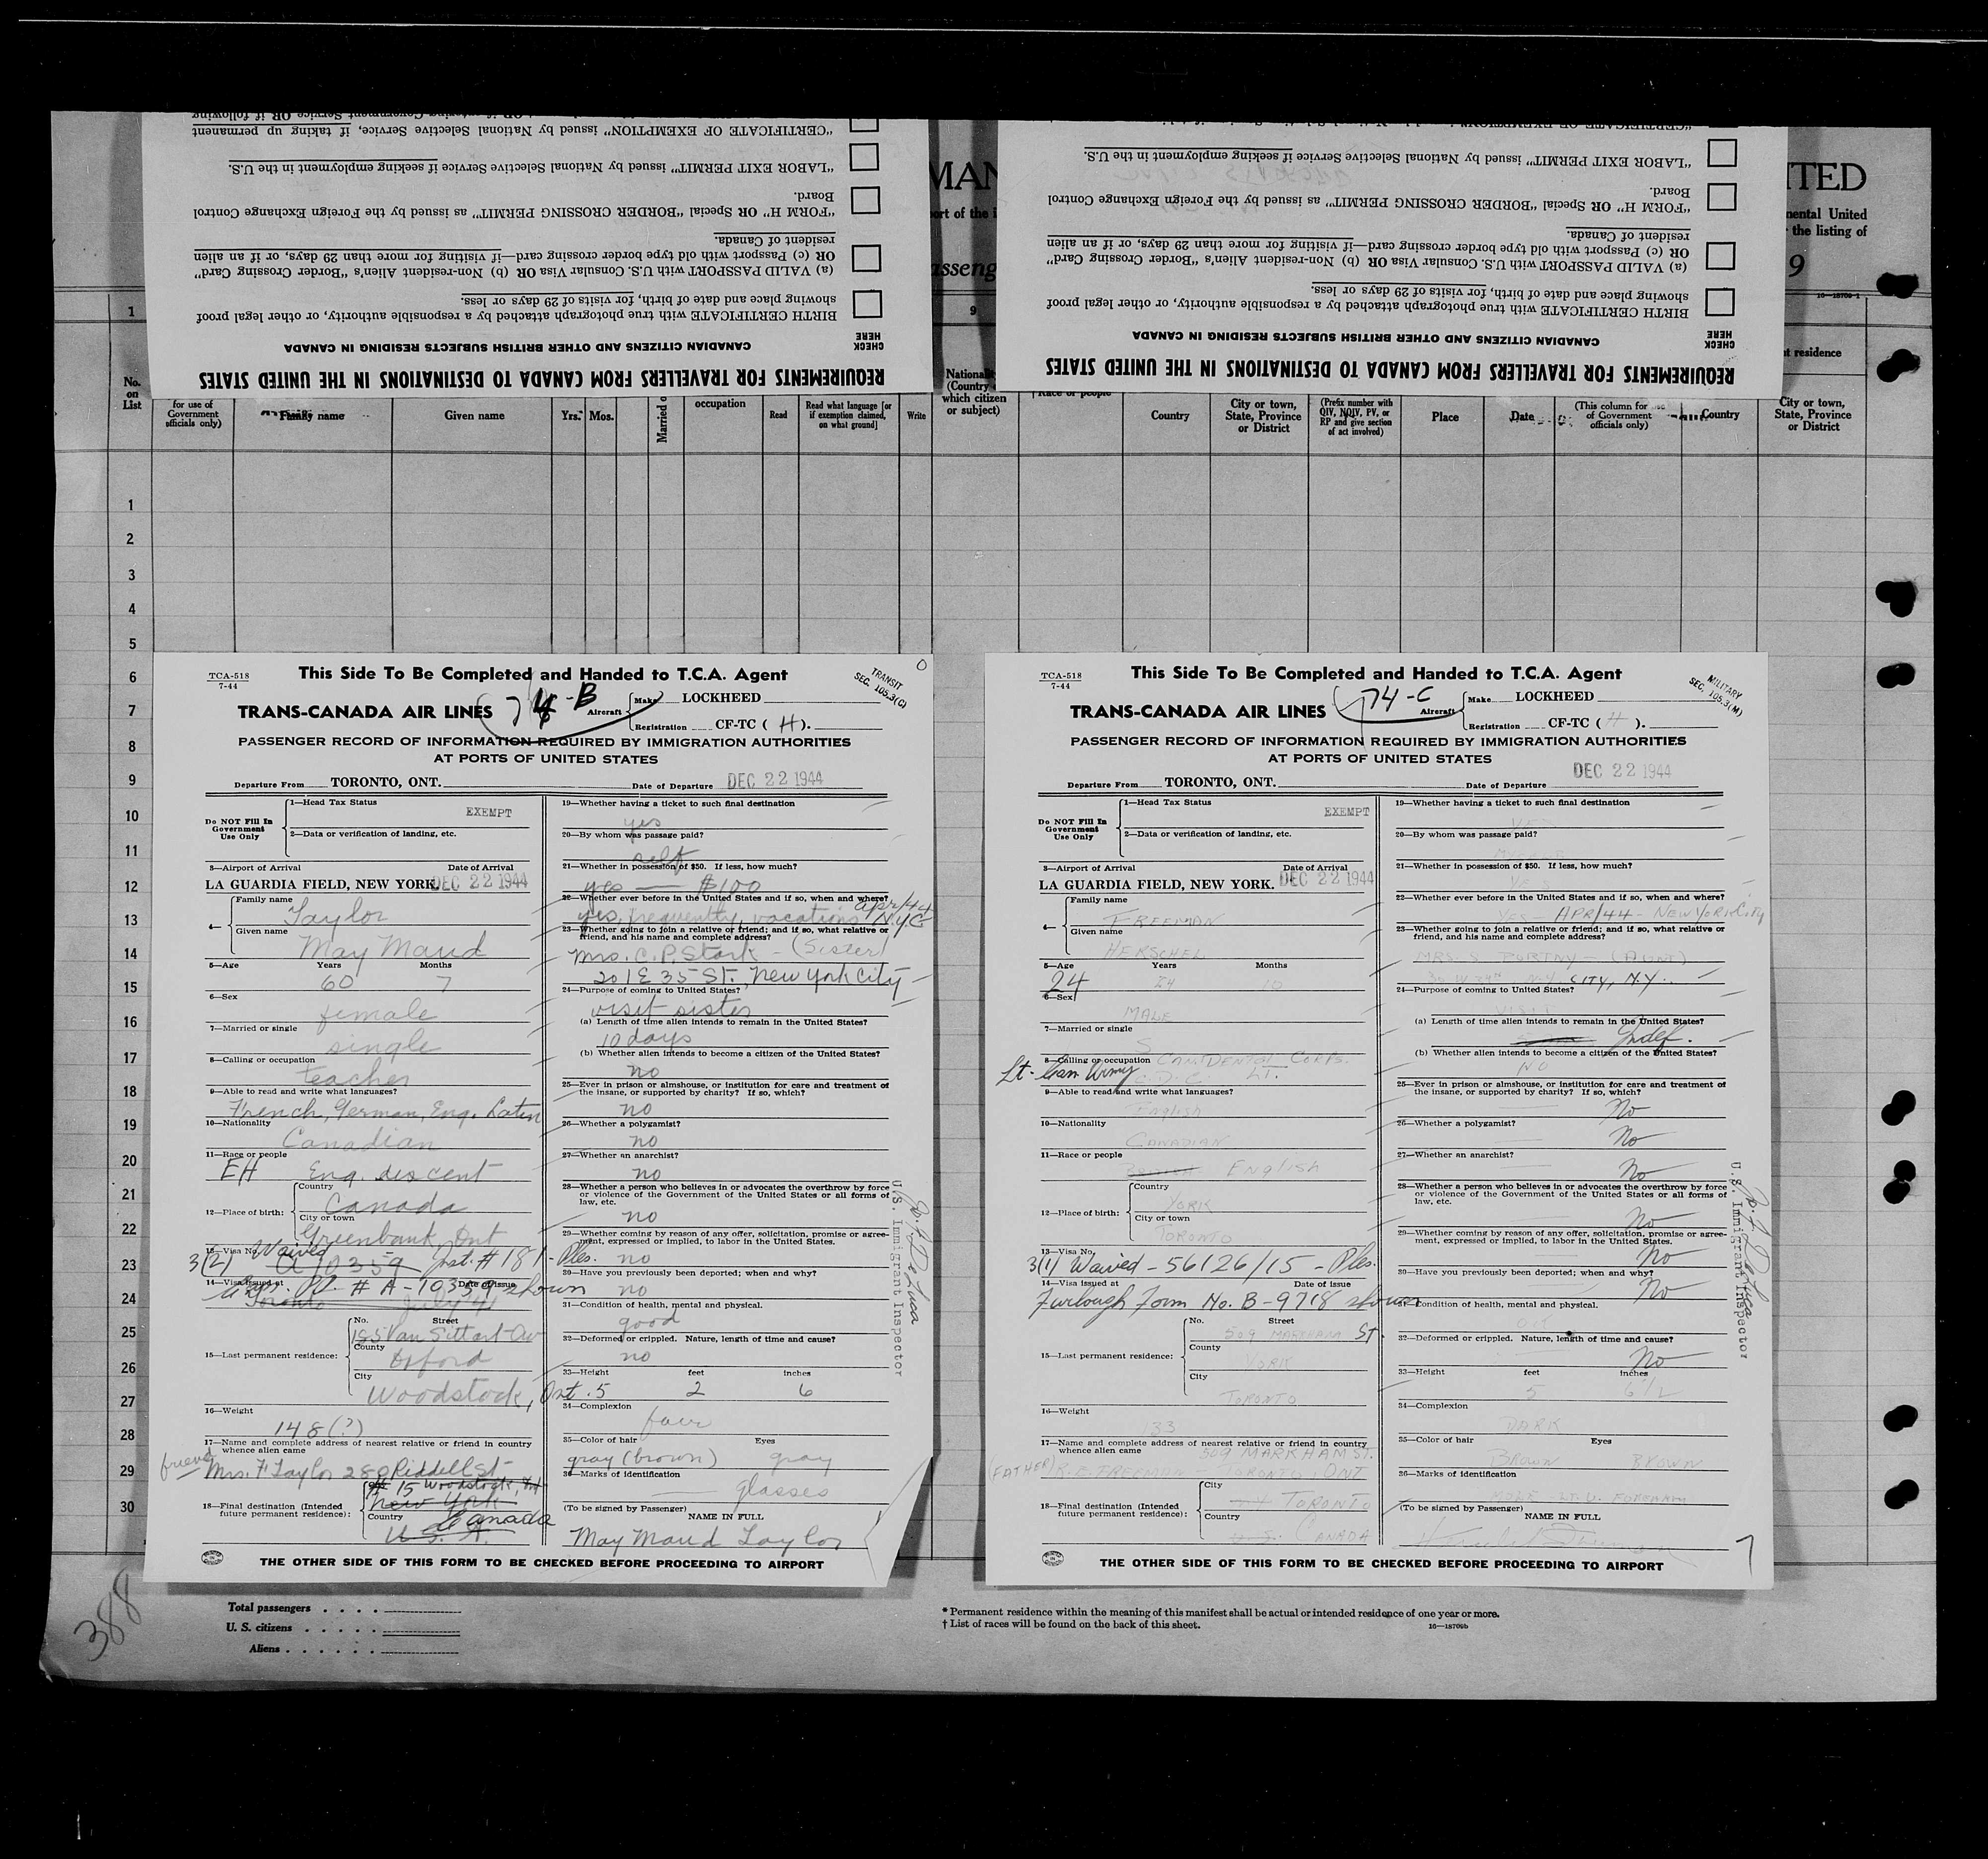 REQUIREMENTS FOR TRAVELLERS FROM CANADA TO DESTINATIONS IN THE UNITED STATES
CHECK HERE
CANADIAN CITIZENS AND OTHER BRITISH SUBJECTS RESIDING IN CANADA
BIRTH CERTIFICATE with true photograph attached by a responsible authority, or other legal proof
showing place and date of birth, for visits of 29 days or less.
(a) VALID PASSPORT with U.S. Consular Visa OR (b) Non-resident Alien's "Border Crossing Card"
OR (c) Passport with old type border crossing card—if visiting for more than 29 days, or if an alien
resident of Canada.
"FORM H" OR Special "BORDER CROSSING PERMIT" as issued by the Foreign Exchange Control
Board.
"LABOR EXIT PERMIT" issued by National Selective Service if seeking employment in the U.S.
"CERTIFICATE OF EXEMPTION" issued by National Selective Service, if taking up permanent
REQUIREMENTS FOR TRAVELLERS FROM CANADA TO DESTINATIONS IN THE UNITED STATES
CHECK HERE
CANADIAN CITIZENS AND OTHER BRITISH SUBJECTS RESIDING IN CANADA
BIRTH CERTIFICATE with true photograph attached by a responsible authority, or other legal proof
showing place and date of birth, for visits of 29 days or less.
(a) VALID PASSPORT with U.S. Consular Visa OR (b) Non-resident Alien's "Border Crossing Card"
OR (c) Passport with old type border crossing card—if visiting for more than 29 days, or if an alien
resident of Canada.
"FORM H" OR Special "BORDER CROSSING PERMIT" as issued by the Foreign Exchange Control
Board.
"LABOR EXIT PERMIT" issued by National Selective Service if seeking employment in the U.S.
MAN
ITED
ort of the
nental United
the listing of
asseng
9
1
9
t residence
No. on List
for use of Government officials only)
Family name
Given name
Yrs. Mos.
Married o
occupation
Read
Read what language [or if exemption claimed, on what ground]
Write
Nationality (Country which citizen or subject)
Race or people
Country
City or town, State, Province or District
(Prefix number with QIV, NQIV, PV, or RP and give section of act involved)
Place
Date
(This column for use of Government officials only)
Country
City or town, State, Province or District
1
2
3
4
5
6
7
8
9
10
11
12
13
14
15
16
17
18
19
20
21
22
23
24
25
26
27
28
29
30
TCA-518
7-44
This Side To Be Completed and Handed to T.C.A. Agent
TRANSIT
SEC. 105.3(C)
74-B
TRANS-CANADA AIR LINES
Aircraft
Make LOCKHEED
Registration CF-TC ( H ).
PASSENGER RECORD OF INFORMATION REQUIRED BY IMMIGRATION AUTHORITIES
AT PORTS OF UNITED STATES
Departure From TORONTO, ONT. Date of Departure DEC 22 1944
Do NOT Fill In Government Use Only
1—Head Tax Status EXEMPT
2—Data or verification of landing, etc.
3—Airport of Arrival Date of Arrival
LA GUARDIA FIELD, NEW YORK. DEC 22 1944
4— Family name Taylor
Given name May Maud
5—Age Years 60 Months 7
6—Sex female
7—Married or single single
8—Calling or occupation teacher
9—Able to read and write what languages?
French, German, Eng. Latin
10—Nationality Canadian
11—Race or people
EH Eng. descent
12—Place of birth: Country Canada
City or town Greenbank, Ont
13—Visa No. Waived
3(2) A 10359 Inst. # 181-Ples.
14—Visa issued at Date of issue
# A-10359 shown
Toronto July 41
15—Last permanent residence: No. Street
185 Van Sittart Av
County Oxford
City Woodstock, Ont.
16—Weight 148(?)
17—Name and complete address of nearest relative or friend in country whence alien came
friend Mrs. F. Taylor 280 Riddell St
18—Final destination (Intended future permanent residence):
15 Woodstock, Ont
New York
Country Canada
U.S.A.
19—Whether having a ticket to such final destination
yes
20—By whom was passage paid?
self
21—Whether in possession of $50. If less, how much?
yes — $100
22—Whether ever before in the United States and if so, when and where?
yes, frequently, vacations Apr/44 N.Y.C
23—Whether going to join a relative or friend; and if so, what relative or friend, and his name and complete address?
Mrs. C. P. Stark - (Sister)
201 E 35 St. New York City
24—Purpose of coming to United States?
visit sister
(a) Length of time alien intends to remain in the United States?
10 days
(b) Whether alien intends to become a citizen of the United States?
no
25—Ever in prison or almshouse, or institution for care and treatment of the insane, or supported by charity? If so, which?
no
26—Whether a polygamist?
no
27—Whether an anarchist?
no
28—Whether a person who believes in or advocates the overthrow by force or violence of the Government of the United States or all forms of law, etc.
no
29—Whether coming by reason of any offer, solicitation, promise or agreement, expressed or implied, to labor in the United States.
no
30—Have you previously been deported; when and why?
no
31—Condition of health, mental and physical.
good
32—Deformed or crippled. Nature, length of time and cause?
no
33—Height feet inches
5 2 6
34—Complexion
fair
35—Color of hair Eyes
gray (brown) gray
36—Marks of identification
glasses
(To be signed by Passenger) NAME IN FULL
May Maud Taylor
U.S. Immigrant Inspector
THE OTHER SIDE OF THIS FORM TO BE CHECKED BEFORE PROCEEDING TO AIRPORT
TCA-518
7-44
This Side To Be Completed and Handed to T.C.A. Agent
MILITARY
SEC. 105.3(M)
74-C
TRANS-CANADA AIR LINES
Aircraft
Make LOCKHEED
Registration CF-TC ( H ).
PASSENGER RECORD OF INFORMATION REQUIRED BY IMMIGRATION AUTHORITIES
AT PORTS OF UNITED STATES
Departure From TORONTO, ONT. Date of Departure DEC 22 1944
Do NOT Fill In Government Use Only
1—Head Tax Status EXEMPT
2—Data or verification of landing, etc.
3—Airport of Arrival Date of Arrival
LA GUARDIA FIELD, NEW YORK. DEC 22 1944
4— Family name FREEMAN
Given name HERSCHEL
5—Age Years Months
24 24 10
6—Sex MALE
7—Married or single S
8—Calling or occupation CAN. DENTAL CORPS.
Lt. Can Army C.D.C. LT.
9—Able to read and write what languages?
English
10—Nationality CANADIAN
11—Race or people
British ENGLISH
12—Place of birth: Country YORK
City or town TORONTO
13—Visa No.
3(1) Waived - 56126/15 - Ples.
14—Visa issued at Date of issue
Furlough Form No. B-9718 shown
15—Last permanent residence: No. Street
509 MARKHAM St.
County YORK
City TORONTO
16—Weight 133
17—Name and complete address of nearest relative or friend in country whence alien came
509 MARKHAM ST.
(FATHER) FREEMAN TORONTO, ONT
18—Final destination (Intended future permanent residence):
City TORONTO
Country U.S. CANADA
19—Whether having a ticket to such final destination
YES
20—By whom was passage paid?
21—Whether in possession of $50. If less, how much?
YES
22—Whether ever before in the United States and if so, when and where?
YES - APR/44 - NEW YORK CITY
23—Whether going to join a relative or friend; and if so, what relative or friend, and his name and complete address?
MRS. S. PORTNY - (AUNT)
CITY, N.Y.
24—Purpose of coming to United States?
VISIT
(a) Length of time alien intends to remain in the United States?
Indef.
(b) Whether alien intends to become a citizen of the United States?
NO
25—Ever in prison or almshouse, or institution for care and treatment of the insane, or supported by charity? If so, which?
No
26—Whether a polygamist?
No
27—Whether an anarchist?
No
28—Whether a person who believes in or advocates the overthrow by force or violence of the Government of the United States or all forms of law, etc.
No
29—Whether coming by reason of any offer, solicitation, promise or agreement, expressed or implied, to labor in the United States.
No
30—Have you previously been deported; when and why?
No
31—Condition of health, mental and physical.
32—Deformed or crippled. Nature, length of time and cause?
No
33—Height feet inches
5 6 1/2
34—Complexion
DARK
35—Color of hair Eyes
BROWN BROWN
36—Marks of identification
(To be signed by Passenger) NAME IN FULL
U.S. Immigrant Inspector
THE OTHER SIDE OF THIS FORM TO BE CHECKED BEFORE PROCEEDING TO AIRPORT
388
Total passengers
U. S. citizens
Aliens
* Permanent residence within the meaning of this manifest shall be actual or intended residence of one year or more.
† List of races will be found on the back of this sheet.
16—18709b